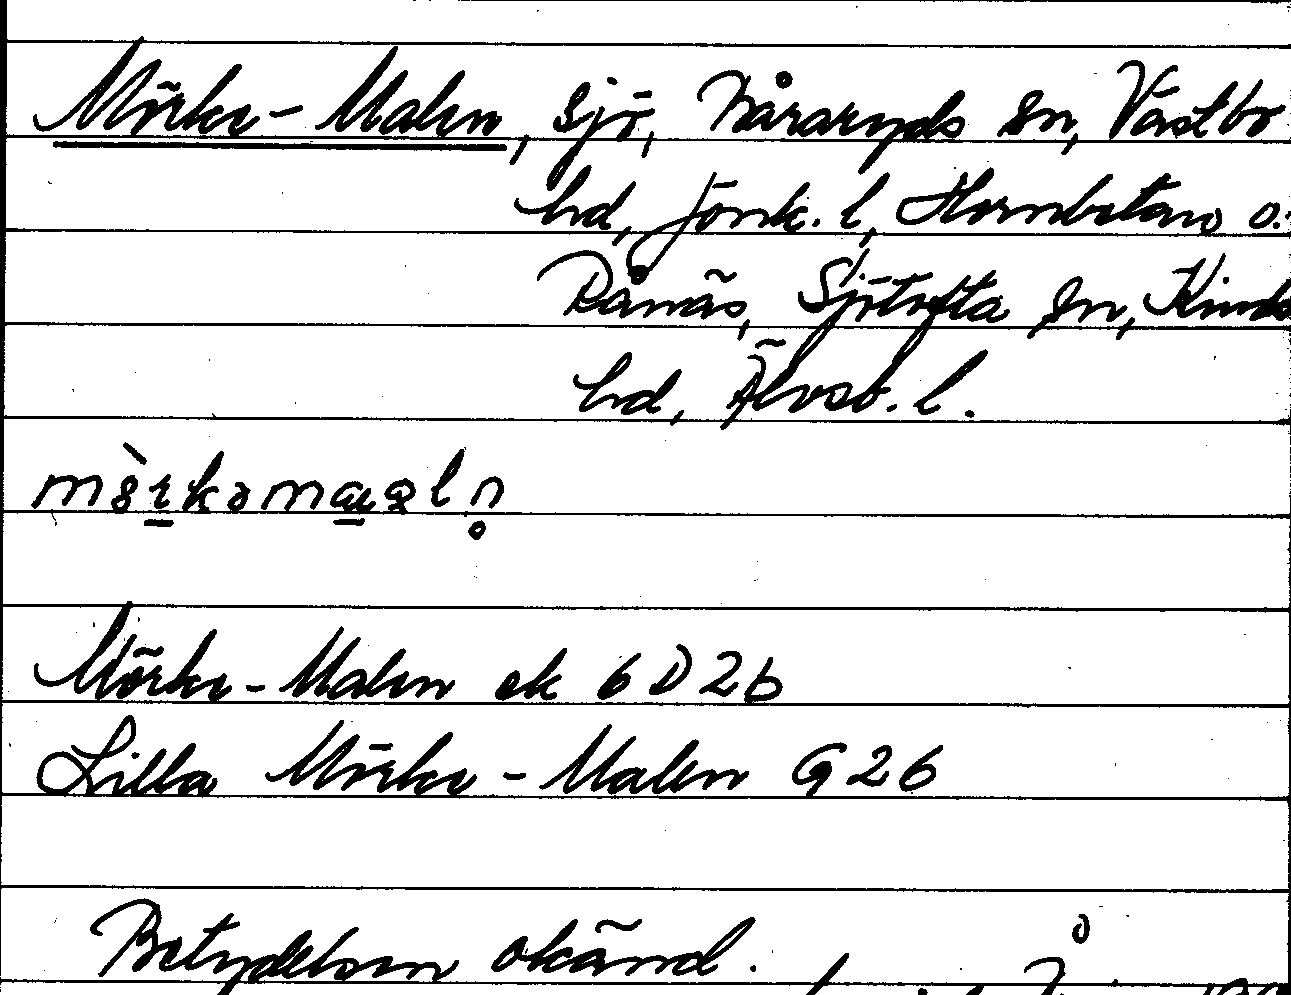 Mörke-Malen, sjö, Båraryds sn, Västbo
hd, Jönk. l, Hornbetan o.
Rånäs, Sjötofta sn, Kinds
hd, Älvsb. l.
Mörke-Malen ek 6 D 2b
Lilla Mörke-Malen G 26
Betydelsen okänd.